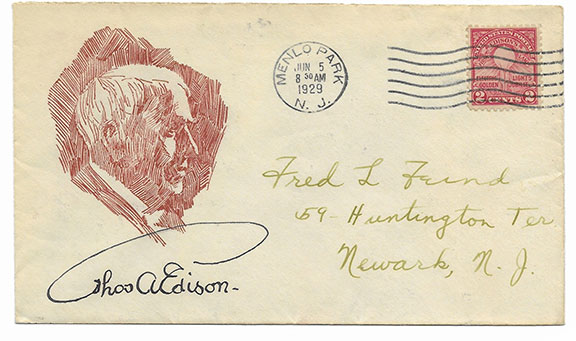 MENLO PARK
JUN 5
8 30 AM
1929
N. J.
UNITED STATES
LIGHT'S
GOLDEN
2 CENTS 2
Fred L
59-Huntington Ter
Newark, N. J.
Thos A Edison-